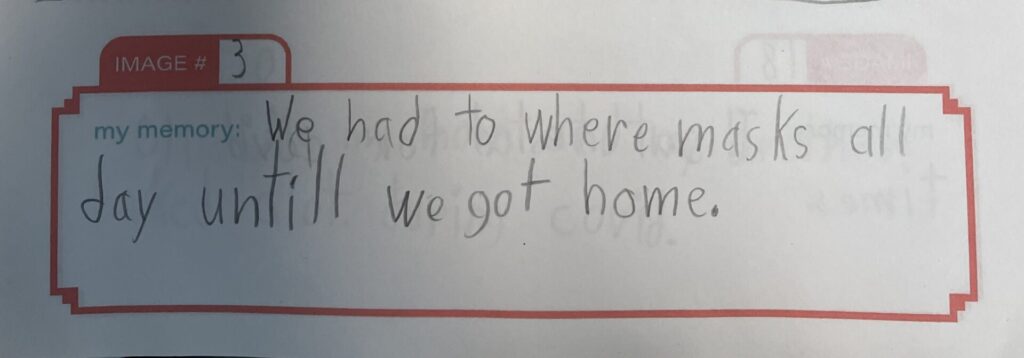 IMAGE # 3
my memory: We had to where masks all
day untill we got home.